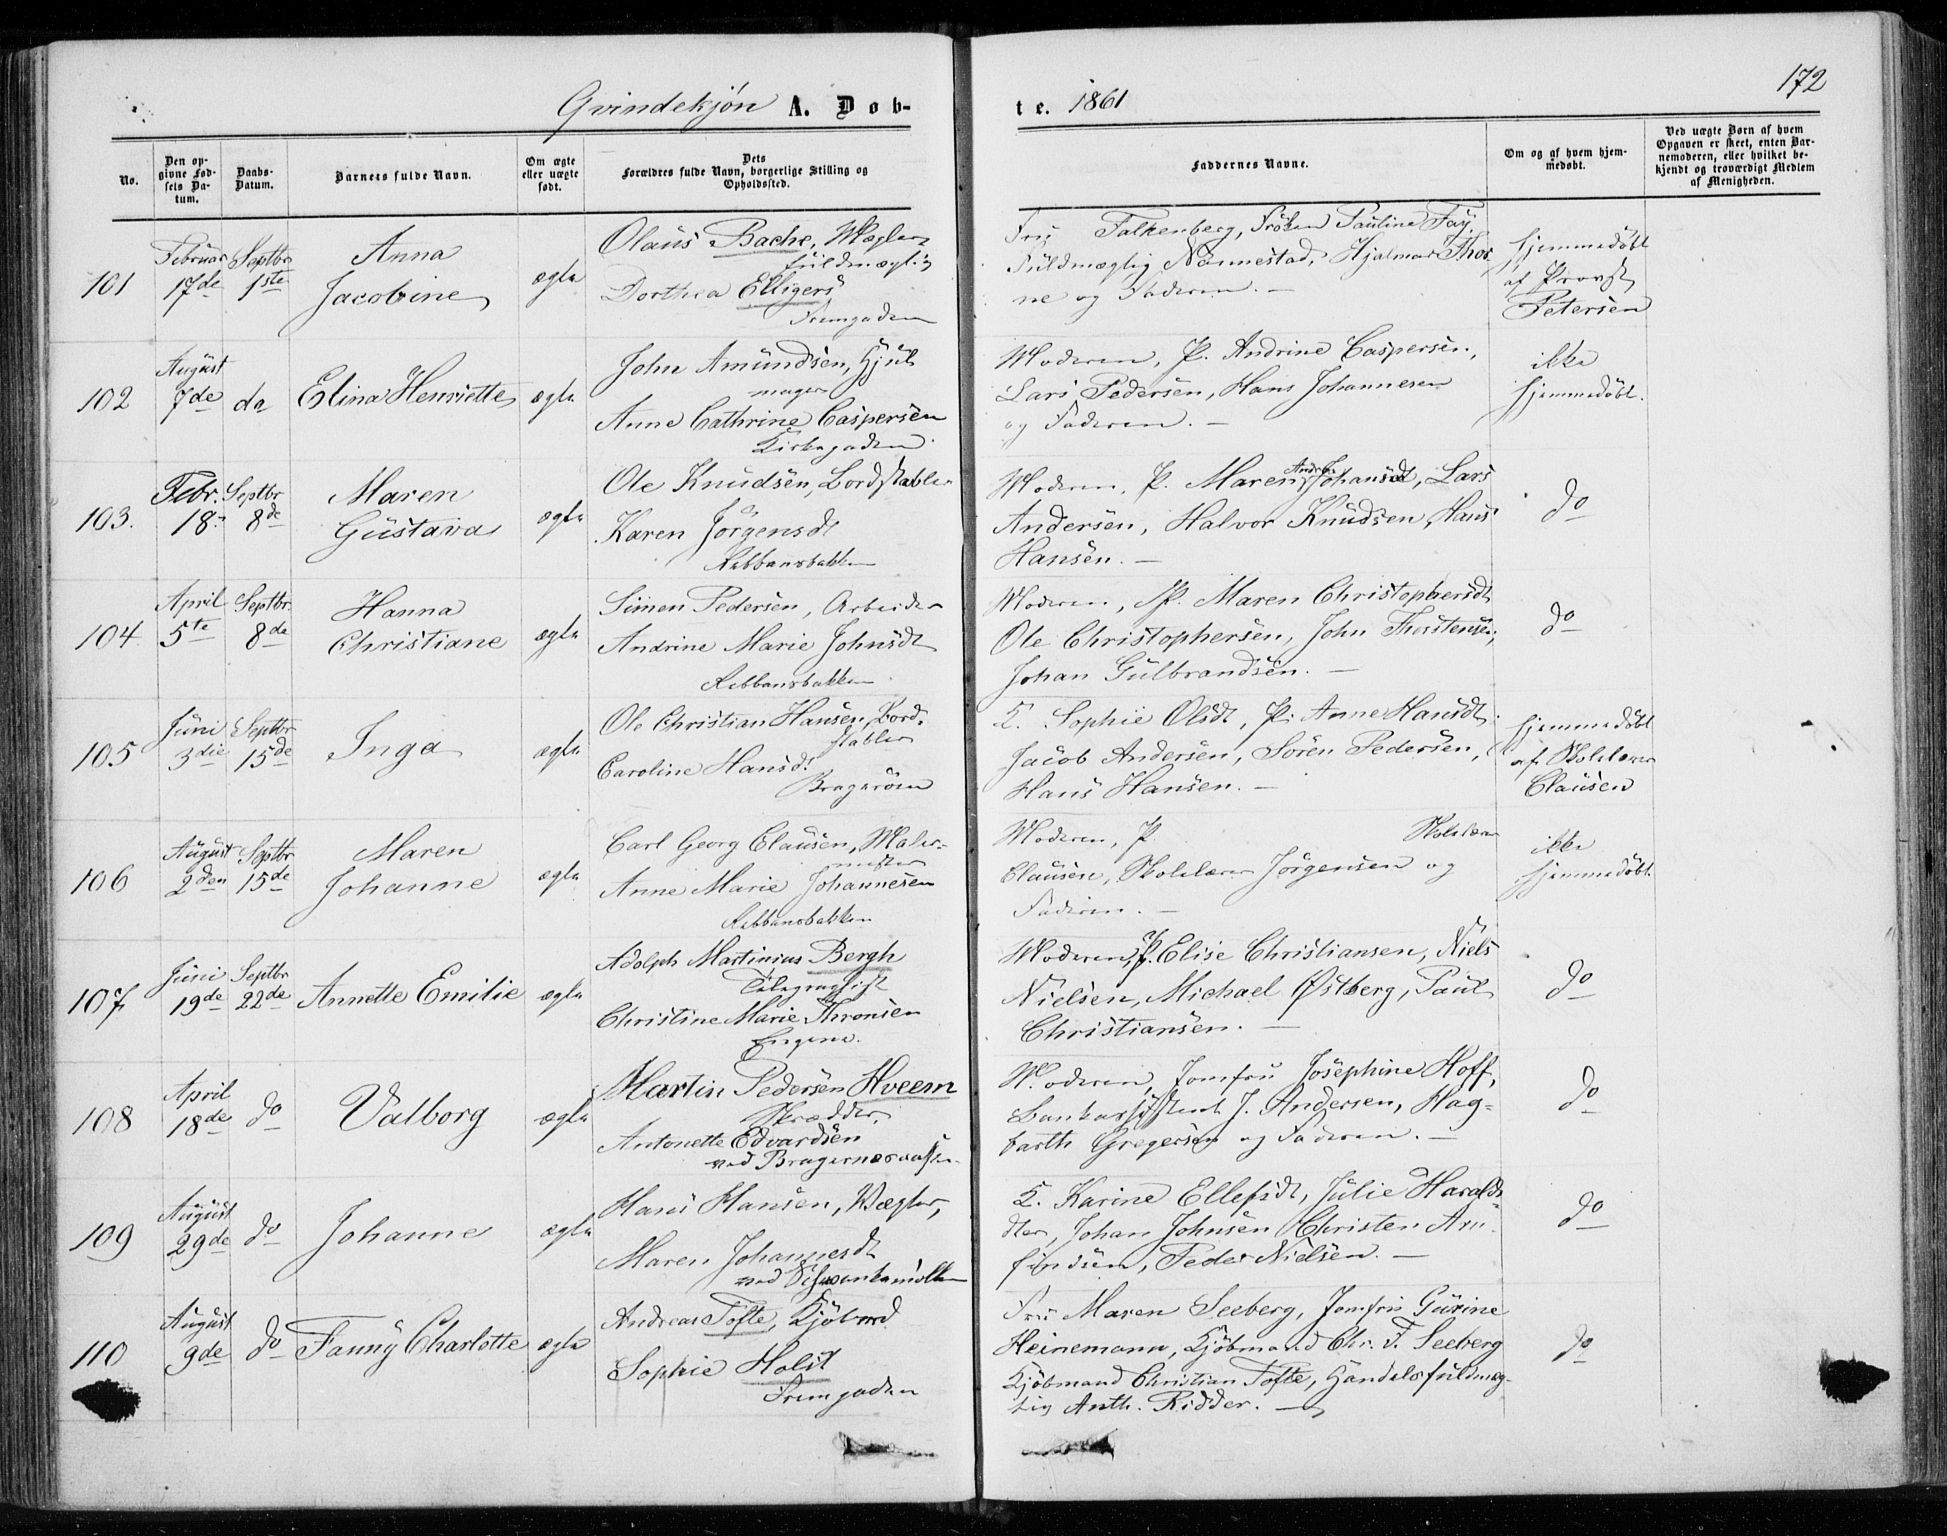 172
Qvindekjøn A. Døb-
te. 1861
No.
Den op-
givne Fød-
sels Da-
tum.
Daabs-
Datum.
Barnets fulde Navn.
Om ægte
eller uægte
født.
Dets
Forældres fulde Navn, borgerlige Stilling og
Opholdssted.
Faddernes Navne.
Om og af hvem hjem-
medøbt.
Ved uægte Børn af hvem
Opgaven er skeet, enten Bar-
nemoderen, eller hvilket be-
kjendt og troværdigt Medlem
af Menigheden.
101
Februar
17de
Septbr
1ste
Anna
Jacobine
ægte
Olaus Bache, Mægler
fuldmægtig
Dorthea Elligers
Strømgaden
Fru Falkenberg, Frøken Pauline Fay
Fuldmægtig Nannestad, Hjalmar Thor
ne og Faderen. —
hjemmedøbt
af Provst
Petersen
102
August
7de
do
Elina Henriette
ægte
John Amundsen, Hjul
mager
Anne Cathrine Caspersen
Kirkegaden
Moderen, P. Andrine Caspersen,
Lars Pedersen, Hans Johannesen
og Faderen. —
ikke
hjemmedøbt.
103.
Febr.
18.
Septbr
8de
Maren
Gustava
ægte
Ole Knudsen, Bordstabler
Karen Jørgensdt
Røbbansbakken
Moderen, P. Maren Andr. Johansdt, Lars
Andersen, Halvor Knudsen, Hans
Hansen. —
do
104
April
5te
Septbr.
8de
Hanna
Christiane
ægte
Simen Pedersen, Arbeider
Andrine Marie Johnsdt
Røbbansbakken
Moderen, P. Maren Christophersdt
Ole Christophersen, John Thorstensen,
Johan Gulbrandsen. —
do
105
Juni
3die
Septbr
15de
Inga
ægte
Ole Christian Hansen, Bord.
stabler
Caroline Hansdt
Bragerøen
K. Sophie Olsdt, P. Anne Hansdt
Jacob Andersen, Søren Pedersen,
Hans Hansen. —
hjemmedøbt
af Skolelærer
Clausen
106
August
2den
Septbr
15de
Maren
Johanne
ægte
Carl Georg Clausen, Maler-
mester
Anne Marie Johannesen
Røbbansbakken
Moderen, P. Skolelærer
Clausen, Skolelærer Jørgensen og
Faderen. —
ikke
hjemmedøbt
107
Juni
19de
Septbr
22de
Annette Emilie
ægte
Adolph Martinius Bergh
Telegraphist
Christine Marie Thronsen
Engene.
Moderen, P. Elise Christiansen, Niels
Nielsen, Michael Østberg, Paul
Christiansen. —
do
108
April
18de
do
Valborg
ægte
Martin Pedersen Hveem
Skrædder,
Antonette Edvardsen
ved Bragernesaasen
Moderen, Jomfru Josephine Hoff,
Bankassistent J. Andersen, Hag-
barth Gregersen og Faderen. —
do
109
August
29de
do
Johanne
ægte
Hans Hansen, Vægter,
Maren Johannesdt
ved
K. Karine Ellefsdt, Julie Harald-
dter, Johan Johnsen Christen Arn
findsen, Peder Nielsen. —
do
110
August
9de
do
Fanny Charlotte
ægte
Andreas Tofte, Kjøbmd
Sophie Holst
Strømgaden
Fru Maren Seeberg, Jomfru Gurine
Heinemann, Kjøbmand Chr. F. Seeberg
Kjøbmand Christian Tofte, Handelsfuldmæg-
tig Anth. Ridder. —
do